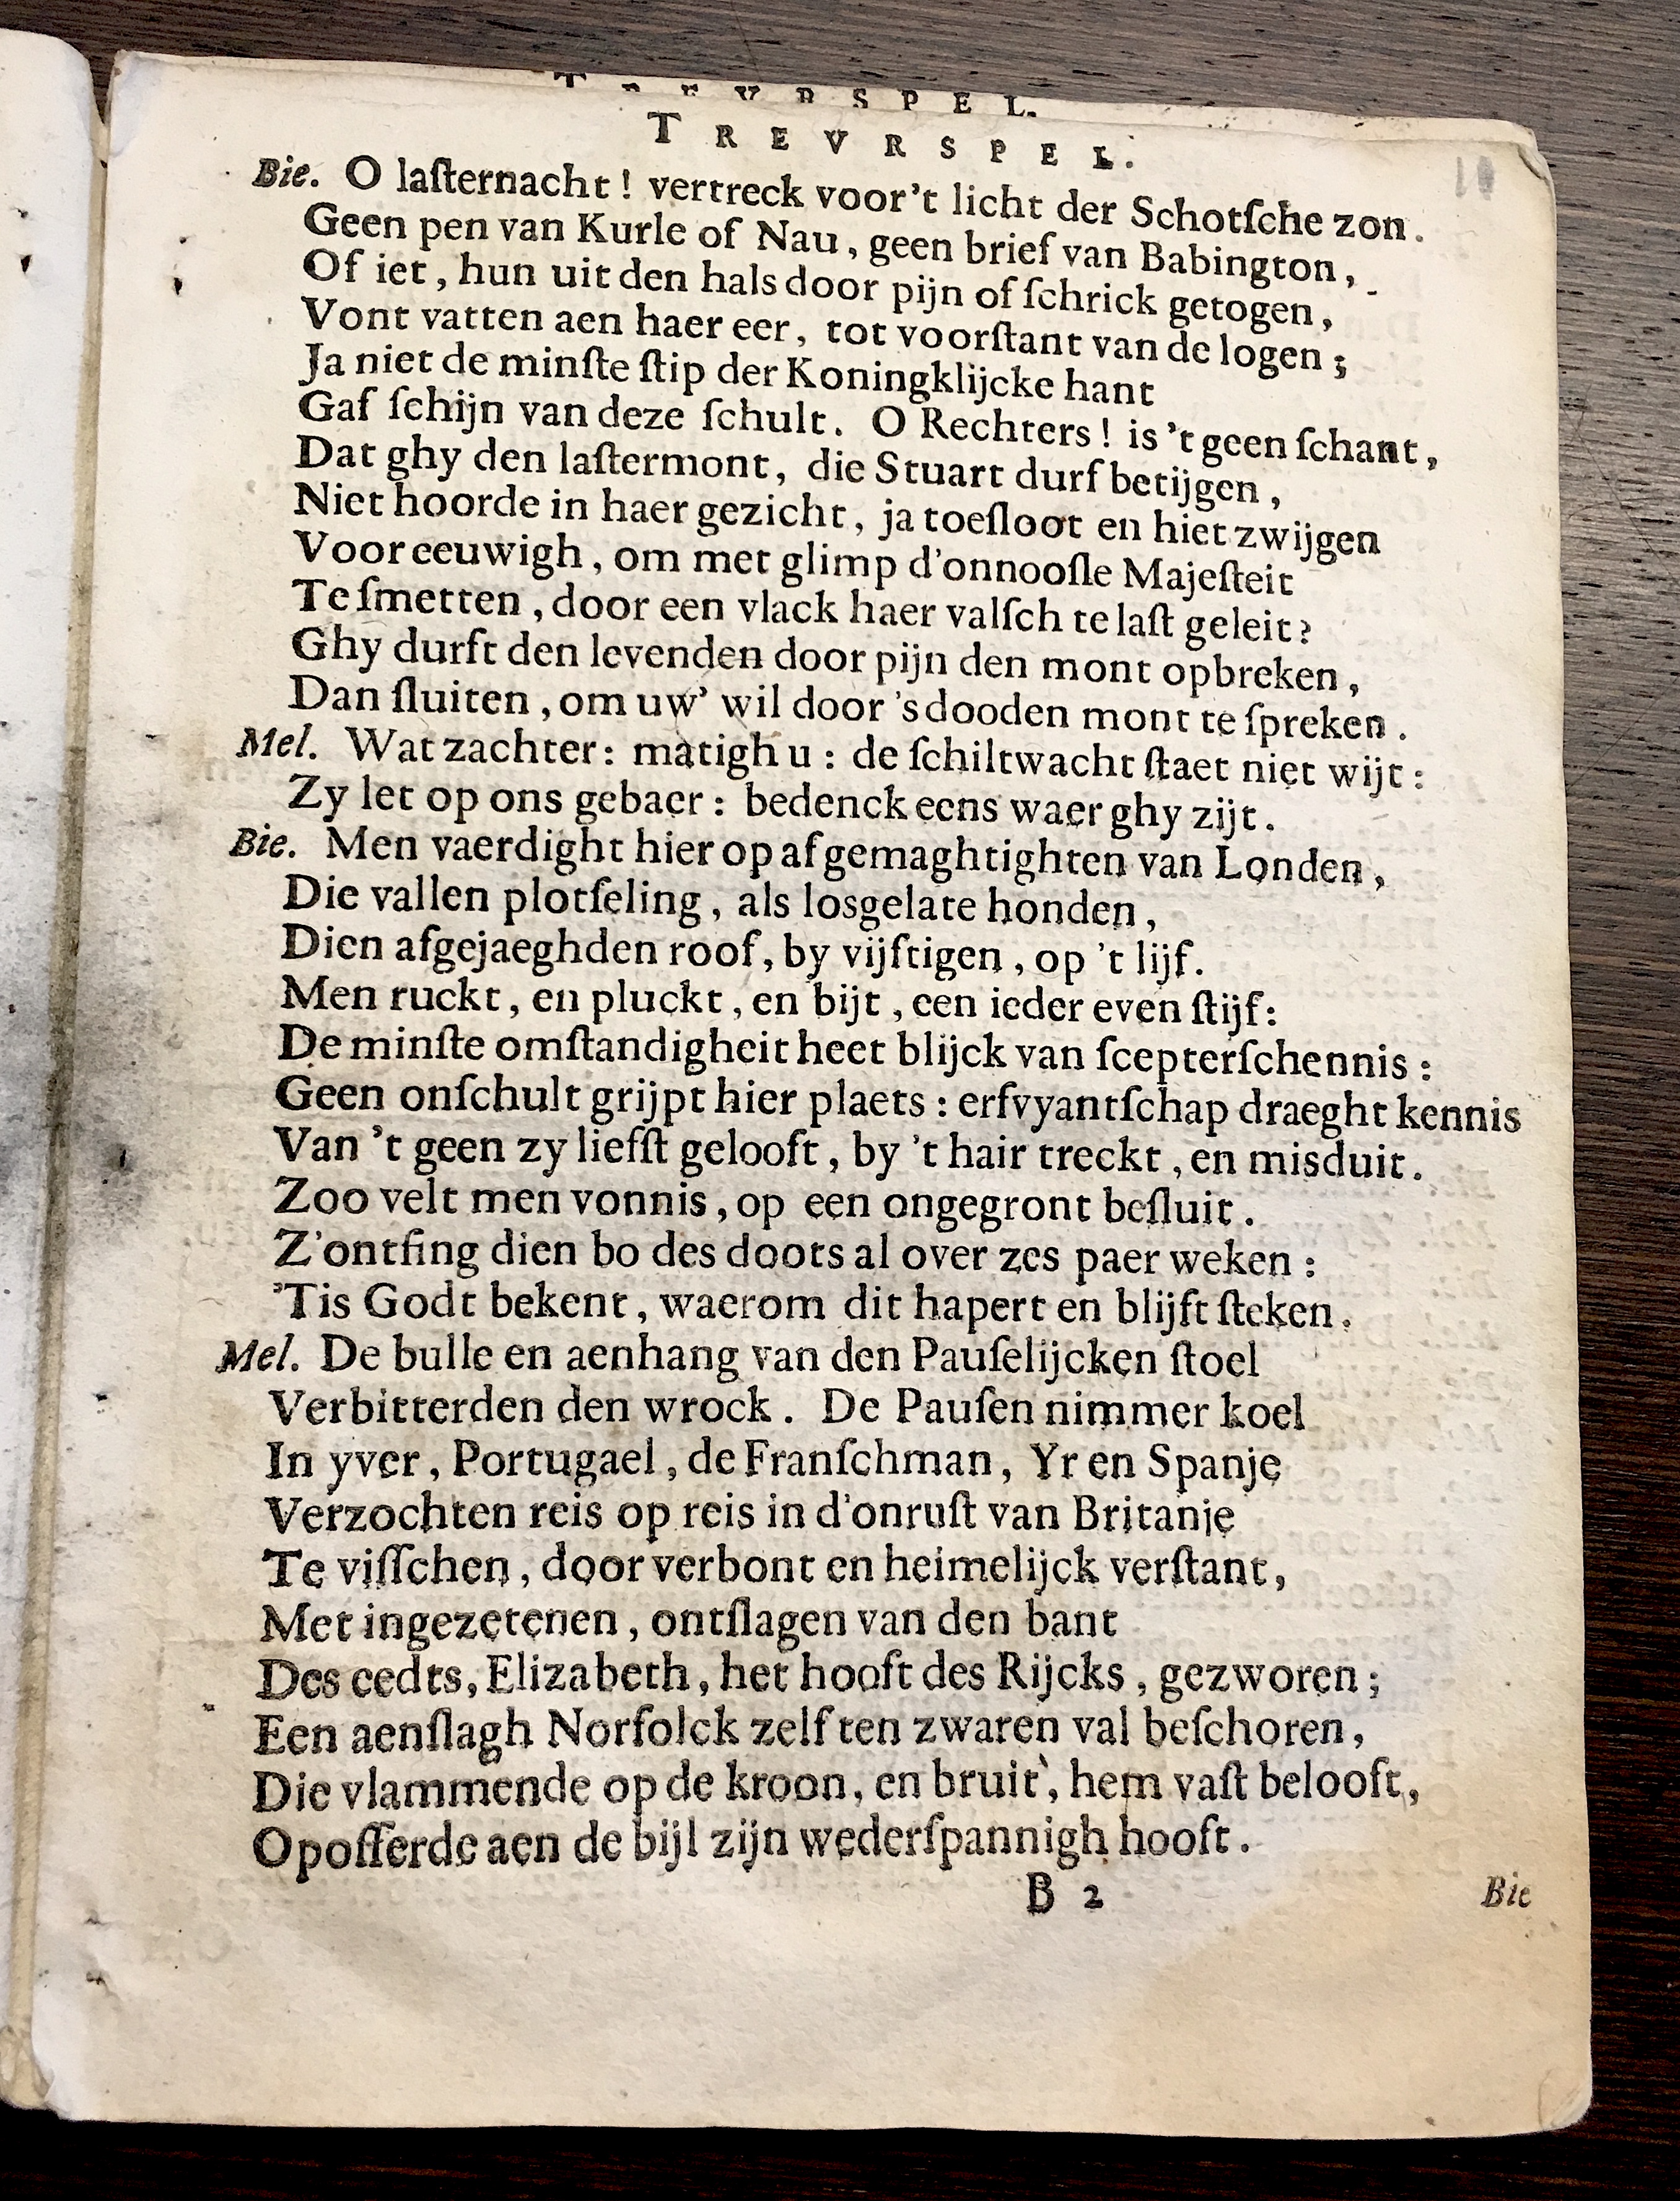 TREVRSPEL.
Bie. O laſternacht! vertreck voor't licht der Schotſche zon.
Geen pen van Kurle of Nau, geen brief van Babington,
Of iet, hun uit den hals door pijn of ſchrick getogen,
Vont vatten aen haer eer, tot voorſtant van de logen;
Ja niet de minſte ſtip der Koningklijcke hant
Gaf ſchijn van deze ſchult. O Rechters! is 't geen ſchant,
Dat ghy den laſtermont, die Stuart durf betijgen,
Niet hoorde in haer gezicht, ja toeſloot en hiet zwijgen
Voor eeuwigh, om met glimp d'onnooſle Majeſteit
Te ſmetten, door een vlack haer valſch te laſt geleit?
Ghy durft den levenden door pijn den mont opbreken,
Dan ſluiten, om uw' wil door 's dooden mont te ſpreken.
Mel. Wat zachter: matigh u: de ſchiltwacht ſtaet niet wijt:
Zy let op ons gebaer: bedenck eens waer ghy zijt.
Bie. Men vaerdight hier op af gemaghtighten van Londen,
Die vallen plotſeling, als losgelate honden,
Dien afgejaeghden roof, by vijftigen, op 't lijf.
Men ruckt, en pluckt, en bijt, een ieder even ſtijf:
De minſte omſtandigheit heet blijck van ſcepterſchennis:
Geen onſchult grijpt hier plaets: erfvyantſchap draeght kennis
Van 't geen zy liefſt gelooft, by 't hair treckt, en misduit.
Zoo velt men vonnis, op een ongegront beſluit.
Z'ontfing dien bo des doots al over zes paer weken:
'Tis Godt bekent, waerom dit hapert en blijft ſteken.
Mel. De bulle en aenhang van den Pauſelijcken ſtoel
Verbitterden den wrock. De Pauſen nimmer koel
In yver, Portugael, de Franſchman, Yr en Spanje
Verzochten reis op reis in d'onruſt van Britanje
Te viſſchen, door verbont en heimelijck verſtant,
Met ingezetenen, ontſlagen van den bant
Des eedts, Elizabeth, het hooft des Rijcks, gezworen;
Een aenſlagh Norfolck zelf ten zwaren val beſchoren,
Die vlammende op de kroon, en bruit, hem vaſt belooft,
Opofferde aen de bijl zijn wederſpannigh hooft.
B 2
Bie